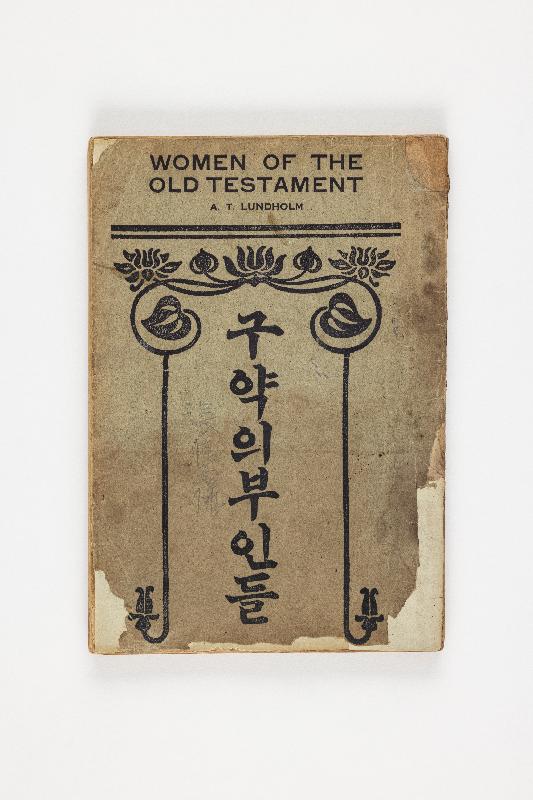 WOMEN OF THE
OLD TESTAMENT
A. T. LUNDHOLM
구약의부인들